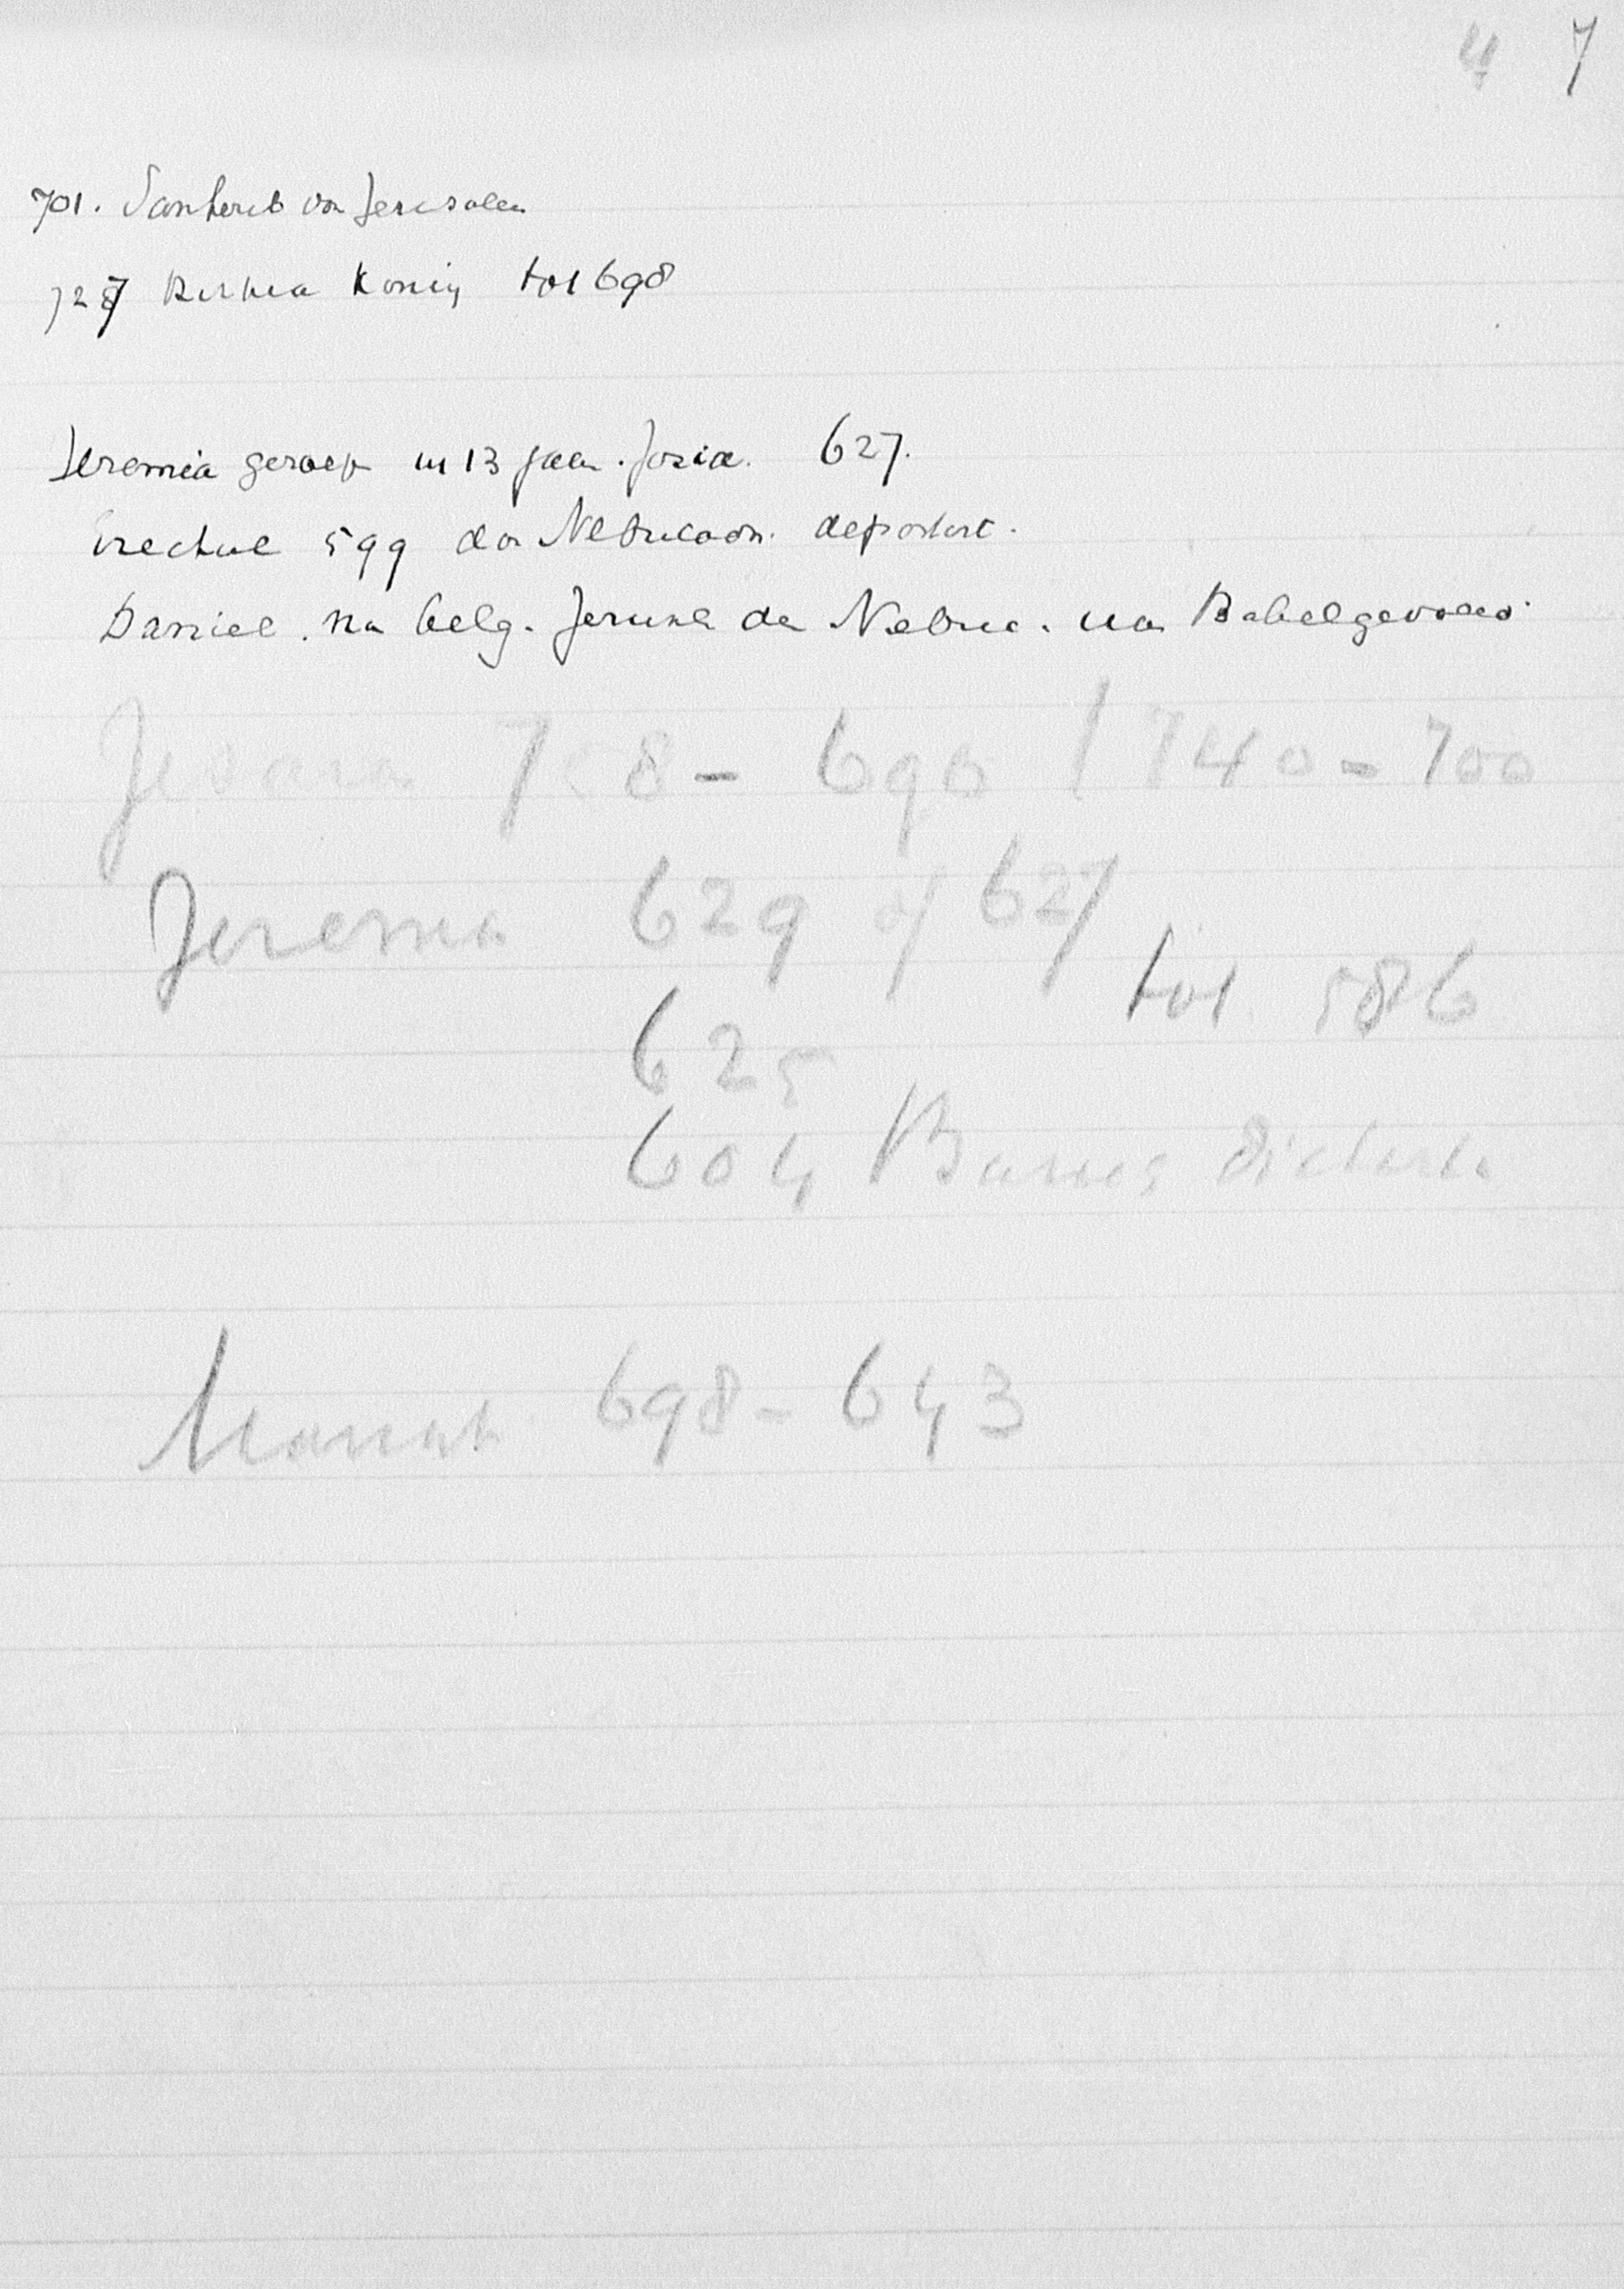 7
701. Sanherib vor Jerusalem
727 Koning tot 698
Jeremia geroep in 13 jaar Josia. 627.
599 dr Nebucadn. deporteert.
Daniel na beleg. Jerusal dr Nebuc. na Babel gevoerd.
Jesaia 7 8 - 690 / 740 - 700
Jeremia 629 of 627
tot 586
625
604 Baruch
Manas 698 - 643